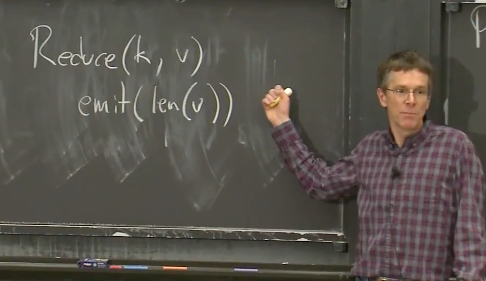 Reduce(k, v)
emit(len(v))
P